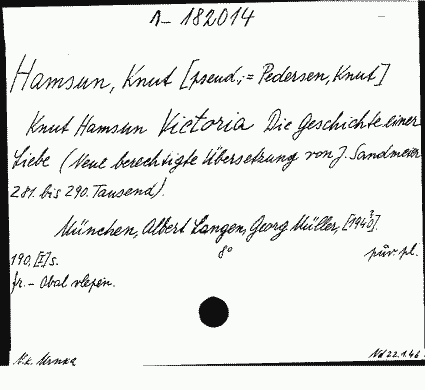 1- 182014
Hamsun, Knut [pseud; = Pedersen, Knut]
Knut Hamsun Victoria Die Geschichte einer
Liebe (Neue berechtigte Übersetzung von J. Sandmeier
281. bis 290. Tausend).
München, Albert Langen, Georg Müller, [1940?].
190, [I] s. 8° pův. pl.
fr. - Obal vlepen.
Nd 22.1.46